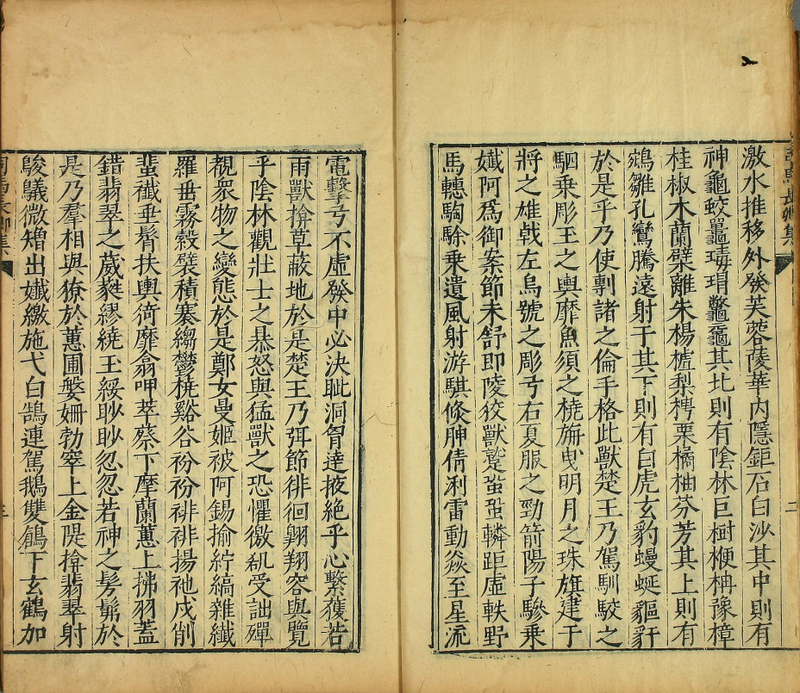 激水推移外發芙蓉蔆華内隱鉅石白沙其中則有
神龜蛟鼉瑇瑁鼈黿其北則有陰林巨樹楩柟豫樟
桂椒木蘭檗離朱楊樝梨梬栗橘柚芬芳其上則有
鵷雛孔鸞騰遠射干其下則有白虎玄豹蟃蜒貙豻
於是乎乃使剸諸之倫手格此獸楚王乃駕馴駮之
駟乘彫玉之輿靡魚須之橈旃曳明月之珠旗建干
將之雄戟左烏號之彫弓右夏服之勁箭陽子驂乘
孅阿爲御案節未舒即陵狡獸蹵蛩蛩轔距虛軼野
馬轊騊駼乘遺風射游騏倏胂倩浰雷動猋至星流
電擊弓不虛發中必決眦洞胷達掖絶乎心繫獲若
雨獸揜草蔽地於是楚王乃弭節徘徊翱翔容與覽
乎陰林觀壯士之暴怒與猛獸之恐懼徼𠊬受詘殫
覩衆物之變態於是鄭女曼姬被阿錫揄紵縞雜纖
羅垂霧縠襞積褰縐鬱橈谿谷衯衯裶裶揚袘戌削
蜚襳垂髾扶輿猗靡翕呷萃蔡下摩蘭蕙上拂羽蓋
錯翡翠之葳蕤繆繞玉綏眇眇忽忽若神之髣髴於
是乃羣相與獠於蕙圃媻姍勃窣上金隄揜翡翠射
鵔鸃微矰出孅繳施弋白鵠連駕鵝雙鶬下玄鶴加
司馬長卿集
二
三